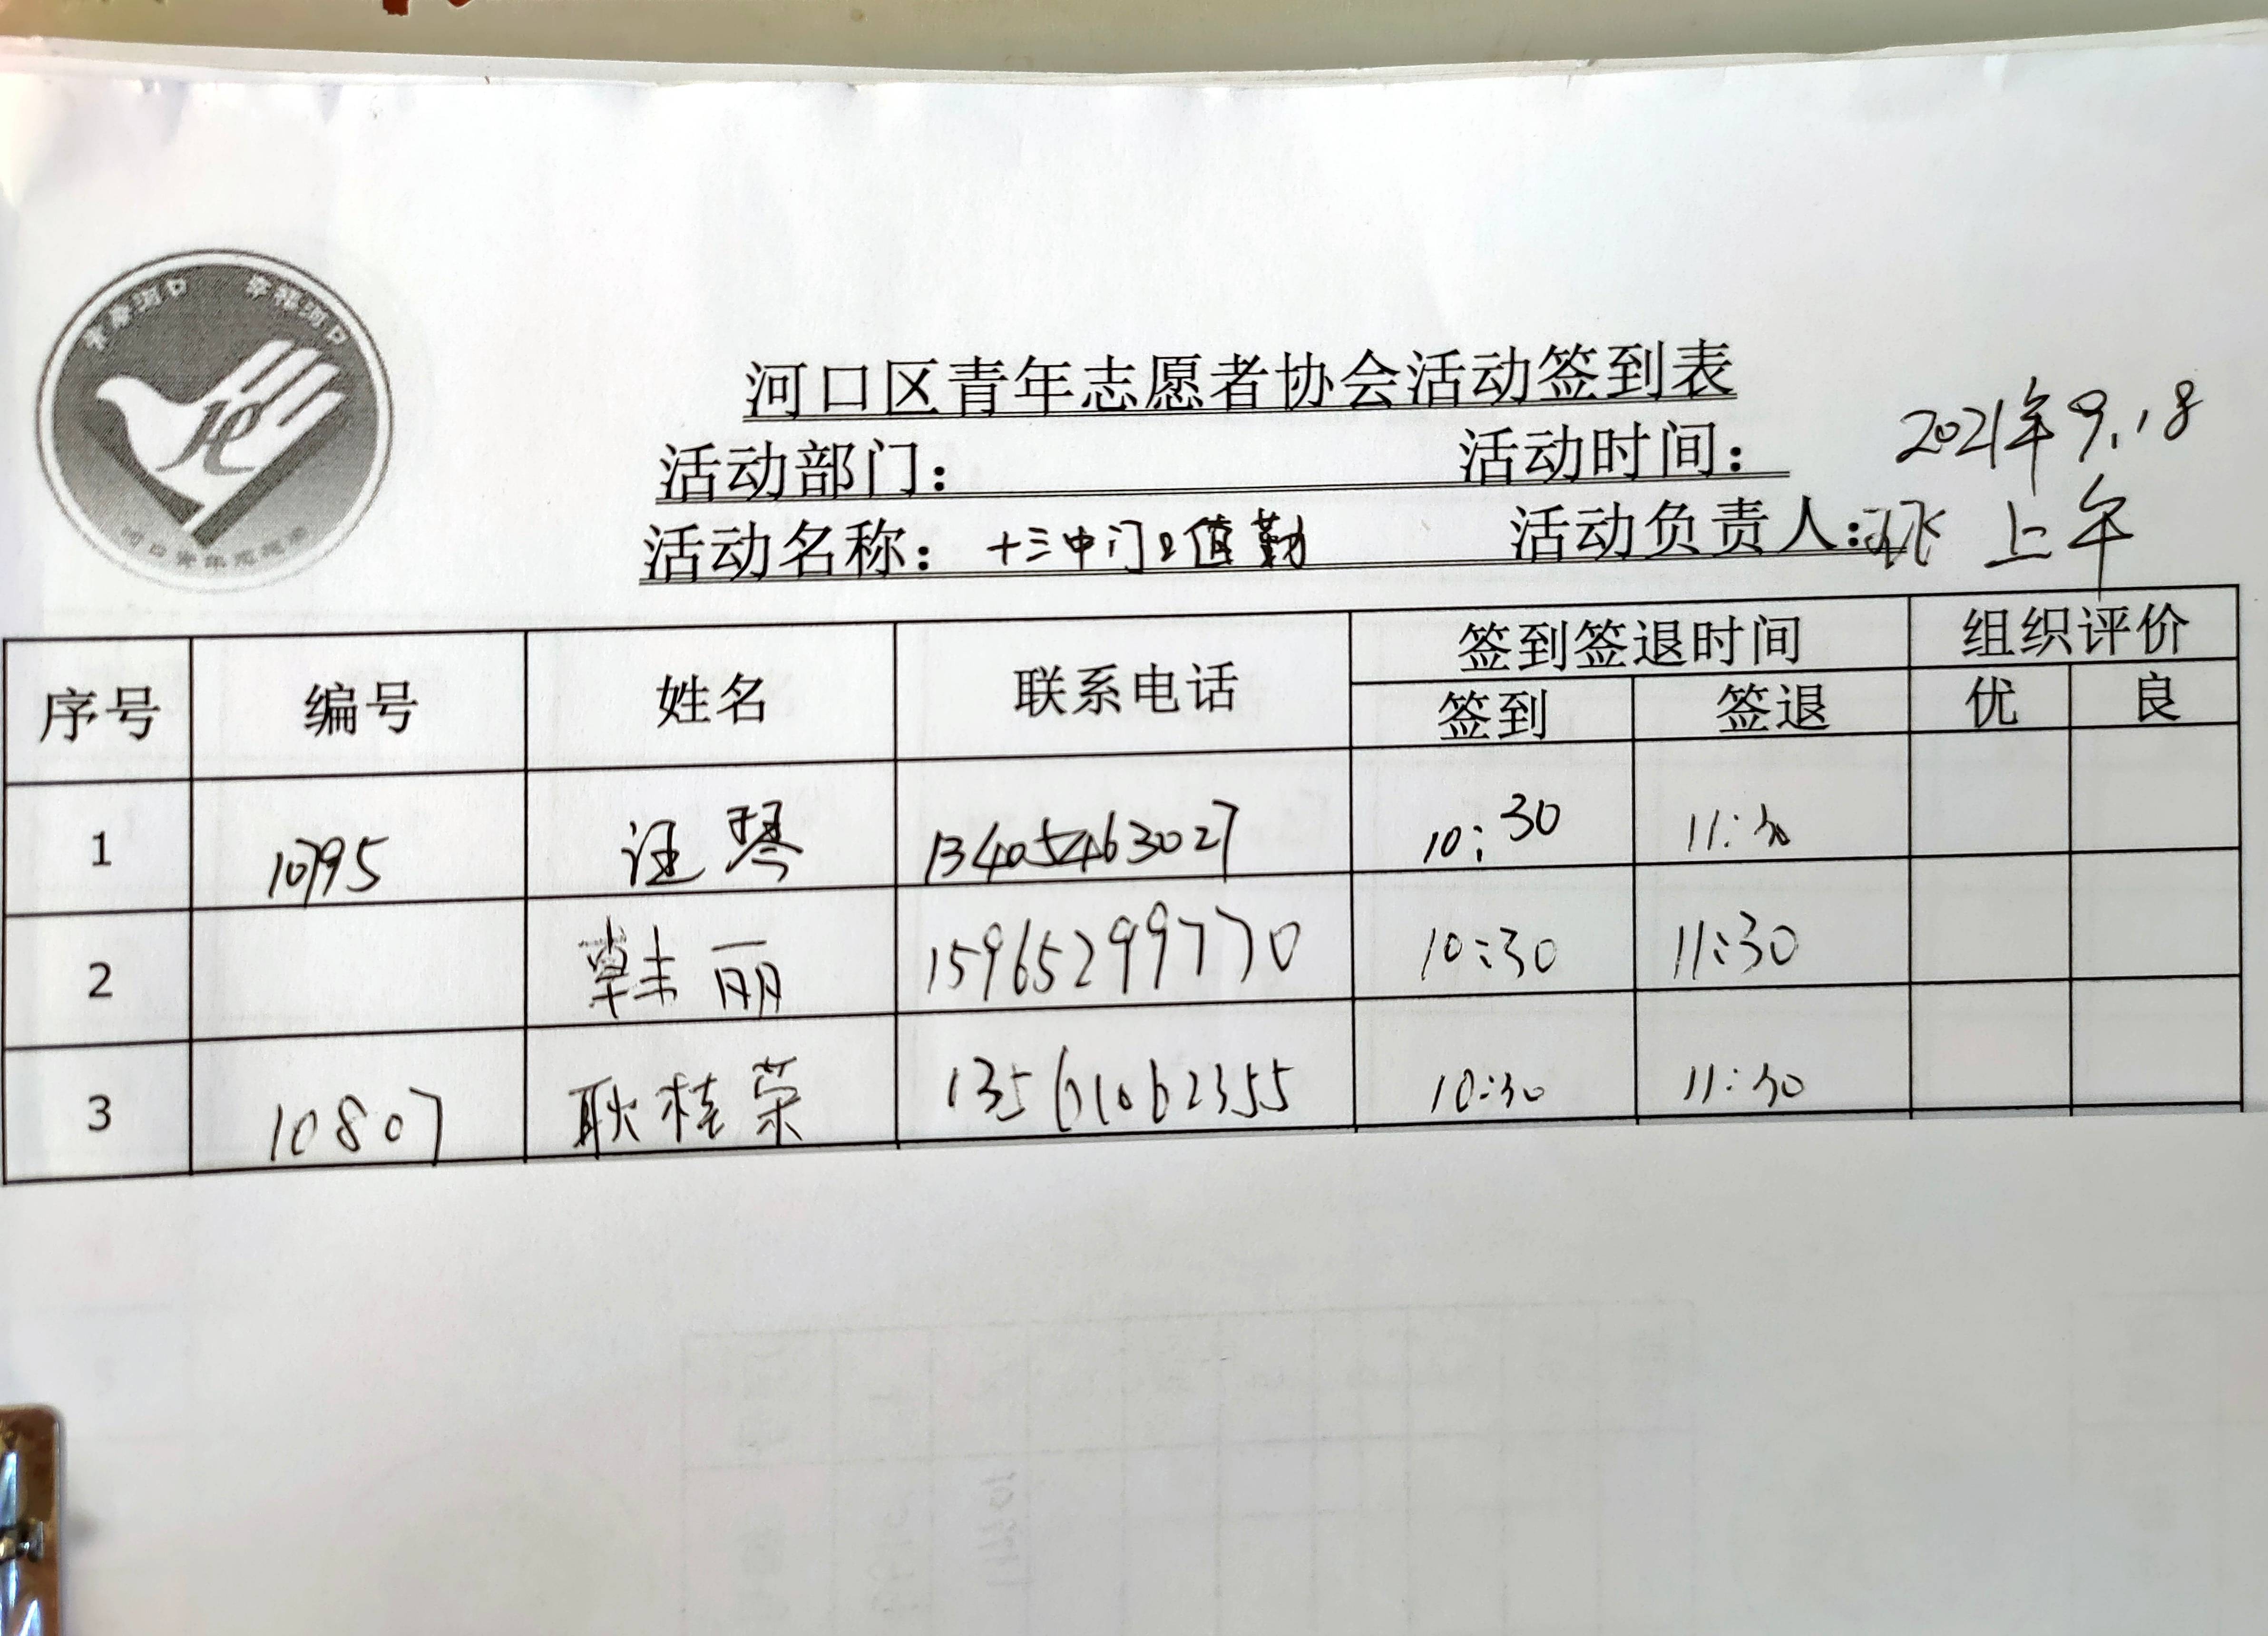 青春河口 幸福河口
河口青年志愿者
河口区青年志愿者协会活动签到表
活动部门： 活动时间： 2021年9.18
活动名称：十三中门口值勤 活动负责人： 上午
序号 编号 姓名 联系电话 签到签退时间 组织评价
签到 签退 优 良
1 10795 汪琴 13405463027 10:30 11:30
2 韩丽 15965299770 10:30 11:30
3 10807 耿桂荣 13561062355 10:30 11:30